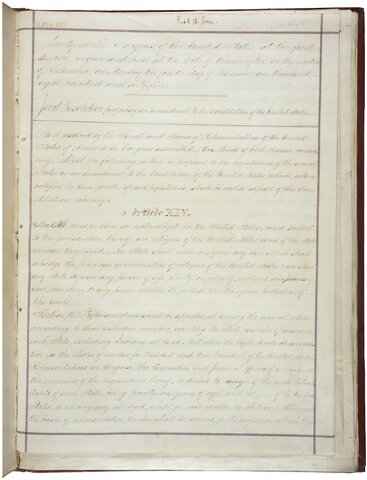 Thirty-ninth Congress of the United States, at the first
session, begun and held at the City of Washington, in the District
of Columbia, on Monday the fourth day of December one thousand
eight hundred and sixty-five.
Joint Resolution proposing an amendment to the Constitution of the United States.
Be it resolved by the Senate and House of Representatives of the United
States of America in Congress assembled, (two thirds of both Houses concur-
ring,) That the following article be proposed to the legislatures of the several
States as an amendment to the Constitution of the United States, which when
ratified by three fourths of said legislatures shall be valid as part of the Con-
stitution, namely:
Article XIV.
Section 1. All persons born or naturalized in the United States, and subject
to the jurisdiction thereof, are citizens of the United States and of the State
wherein they reside. No State shall make or enforce any law which shall
abridge the privileges or immunities of citizens of the United States; nor shall
any State deprive any person of life, liberty, or property, without due process of
law; nor deny to any person within its jurisdiction the equal protection of
the laws.
Section 2. Representatives shall be apportioned among the several States
according to their respective numbers, counting the whole number of persons in
each State, excluding Indians not taxed. But when the right to vote at any elec-
tion for the choice of electors for President and Vice President of the United States,
Representatives in Congress, the Executive and Judicial officers of a State, or
the members of the Legislature thereof, is denied to any of the male inhabi-
tants of such State, being twenty-one years of age, and citizens of the United
States, or in any way abridged, except for participation in rebellion, or other crime,
the basis of representation therein shall be reduced in the proportion which the